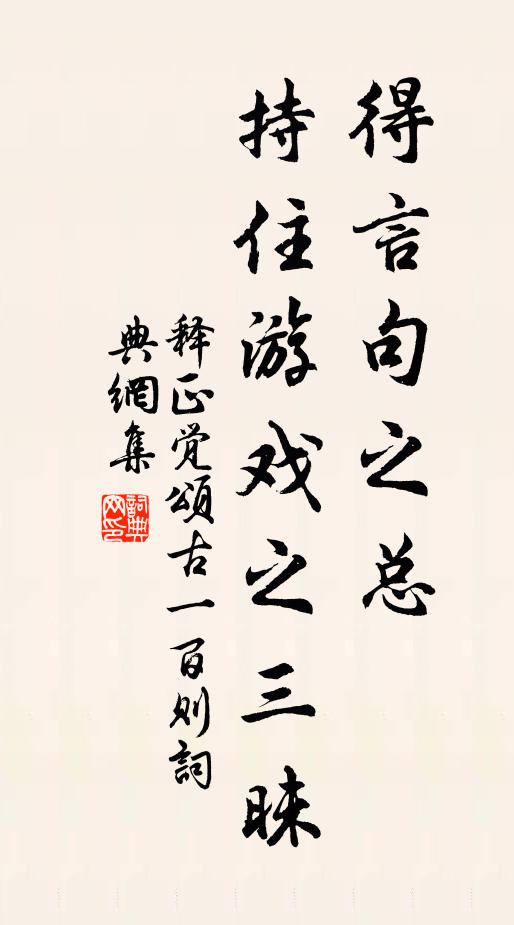 得言句之总
持住游戏之三昧
释正觉颂古一百则詞
典網集
詞典网印